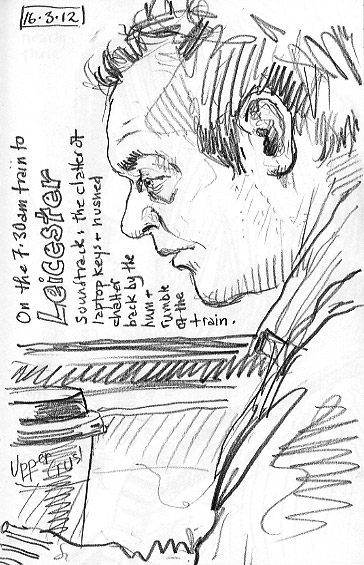 16.3.12
On the 7.30am train to
Leicester
Soundtrack: the clatter of
laptop keys + hushed
chatter
back by the
hum +
rumble
of the
train.
Upper
Crust